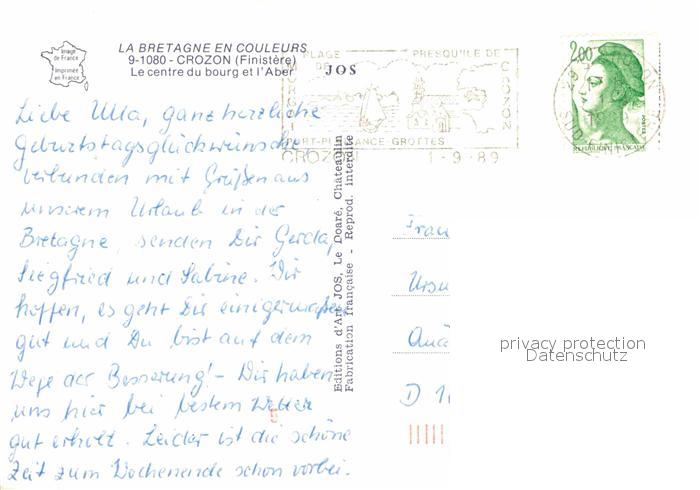 Image
de France
Imprimée
en France
LA BRETAGNE EN COULEURS
9-1080 - CROZON (Finistère)
Le centre du bourg et l'Aber
JOS
PLAGE PRESQU'ILE DE
CROZON
PORT-PLAISANCE GROTTES
CROZON 1-9-89
2,00
REPUBLIQUE FRANÇAISE
Liebe Ulla, ganz herzliche
Geburtstagsglückwünsche
verbunden mit Grüßen aus
unserem Urlaub in der
Bretagne, senden Dir Gerda,
Siegfried und Sabine. Wir
hoffen, es geht Dir einigermaßen
gut und Du bist auf dem
Wege der Besserung! - Wir haben
uns hier bei bestem Wetter
gut erholt. Leider ist die schöne
Zeit zum Wochenende schon vorbei.
Editions d'Art JOS, Le Doaré, Chateaulin
Fabrication française - Reprod. interdite
Frau
Ursu
D 1
privacy protection
Datenschutz